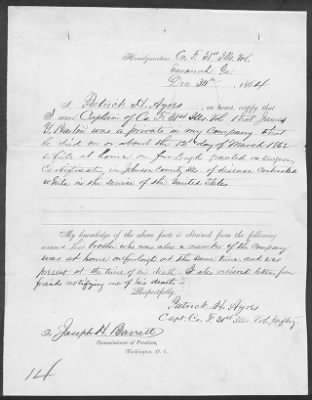 Headquarters Co. F. 31st Ills. Vol.
Savannah, Ga.
Dec 30th, 1864
I, Patrick H. Ayres, on honor, certify that
I am Captain of Co. F 31st Ills Vol that James
G. was a private in my Company that
he died on or about the 12th day of March 1862
while at home on furlough granted on surgeons
Certificate, in Johnson County Ills of disease contracted
while in the service of the United States
My knowledge of the above facts is obtained from the following
named his brother who was also a member of the Company
was at home on furlough at the same time and was
present at the time of his death. I also recieved letters from
friends notifying me of his death
Respectfully,
Patrick H. Ayres
Capt. Co. F 31st Ills. Vol. Infty
To Joseph H. Barrett
Commissioner of Pensions,
Washington, D. C.
14